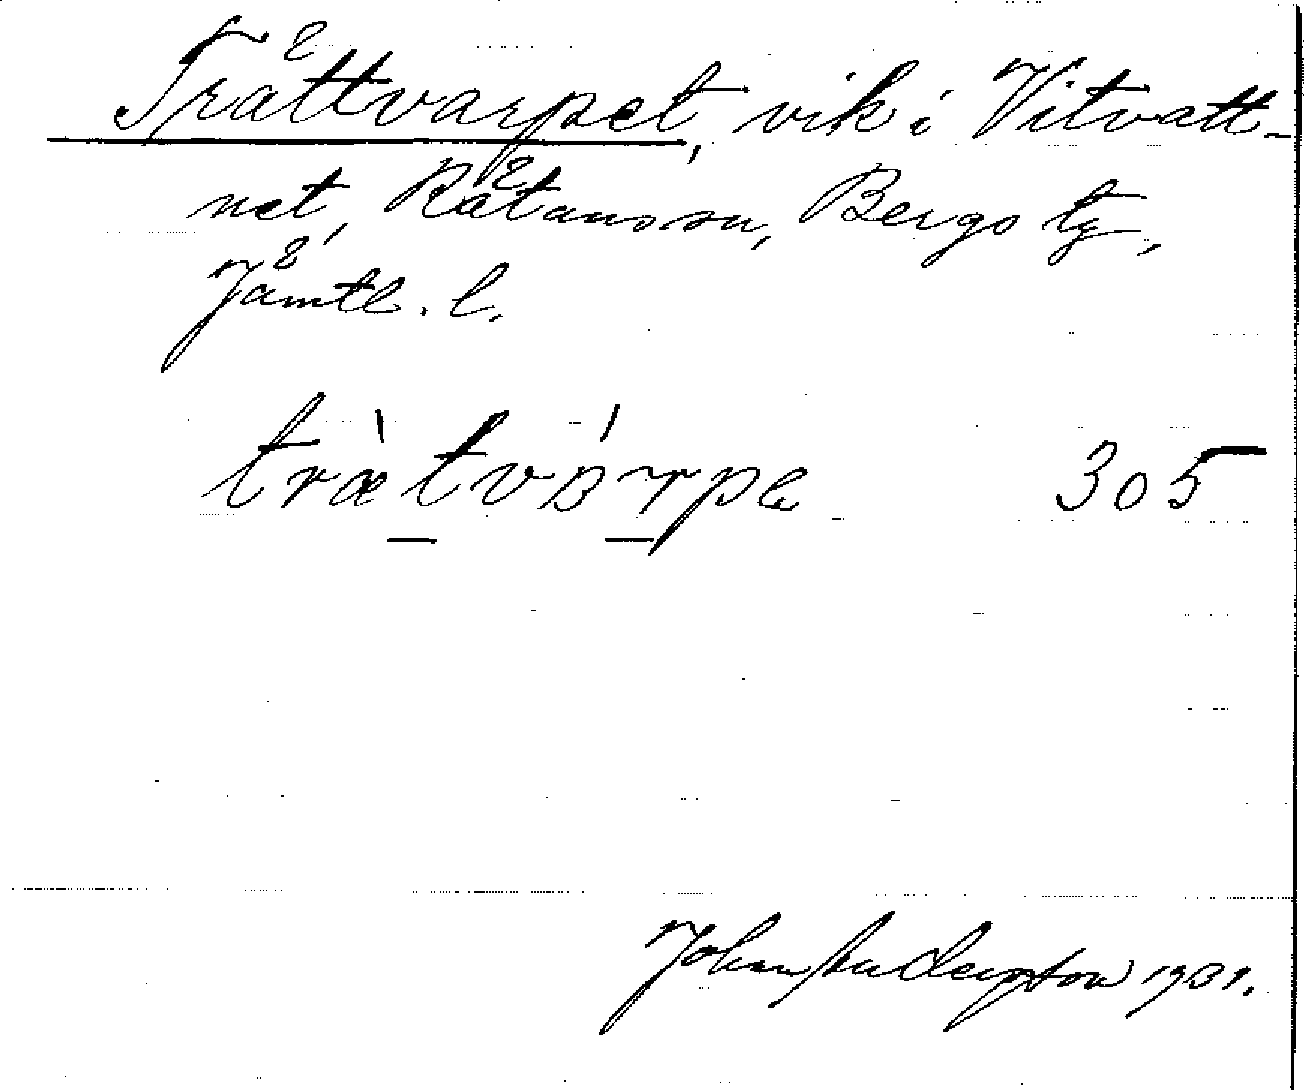 Trättvarpet, vik i Vitvatt-
net, Rätans sn, Bergs tg,
Jämtl. l.
trætvarpe 305
Johan 1931.